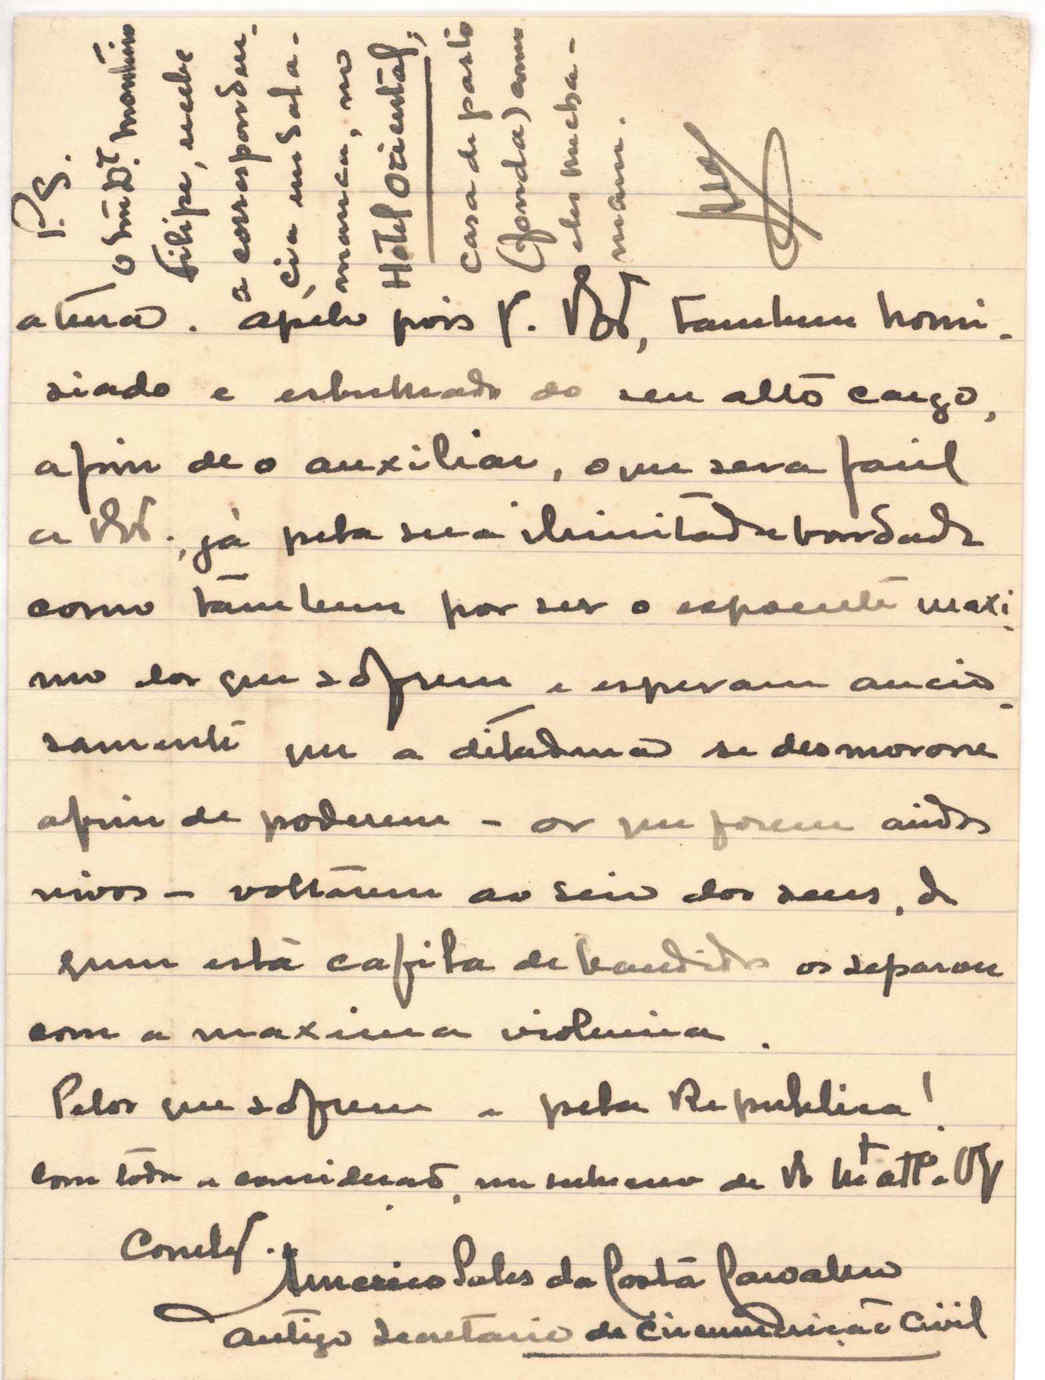 P.S.
O Snr Dr. Monteiro
Filipe, recebe
a correspondên-
cia em Sala-
manca, no
Hotel Oriental,
casa de pasto
(fonda) como
eles lhe cha-
mam.
atenção. Apelo pois V. Exª, tambem homi-
siado e esbulhado do seu alto cargo,
afim de o auxiliar, o que sera facil
a V. Exª., já pela sua ilimitada bondade
como tâmbem por ser o espoente maxi-
mo dos que sofrem e esperam ancio-
samente que a ditadura se desmorone
afim de poderem - os que forem ainda
vivos - voltarem ao seio dos seus, de
quem está cafila de bandidos os separou
com a maxima violencia.
Pelos que sofrem e pela Republica!
Com toda a consideração, me subscrevo de V. Mt att.
Americo Sales da Costa Carvalho
antigo secretario de Circunscrição Civil